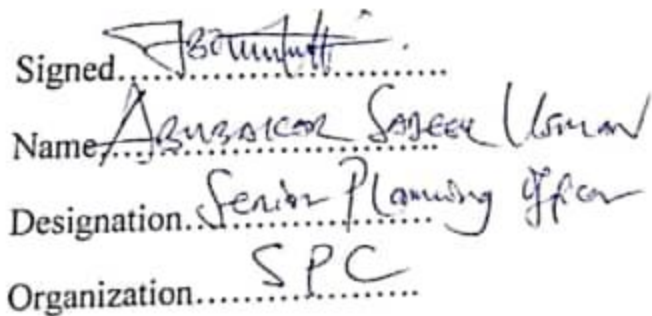 Signed.....................................
Name ABUBAKAR SADEEK USMAN
Designation Senior Planning Officer
Organization SPC